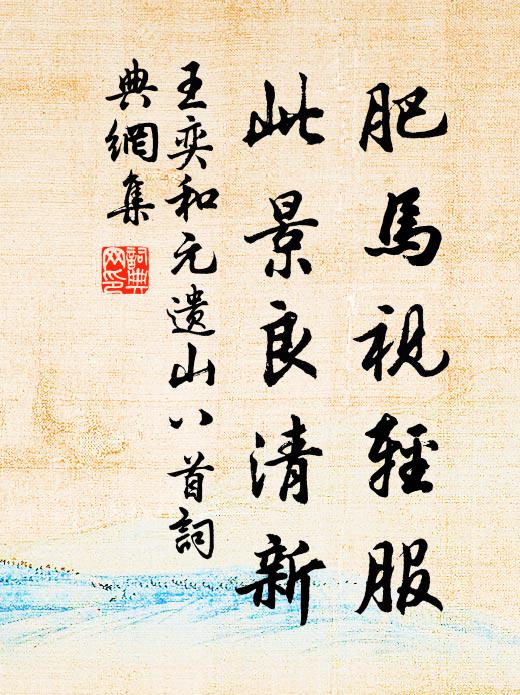 肥馬視輕服
此景良清新
王奕和元遗山八首詞
典網集
詞典
网印